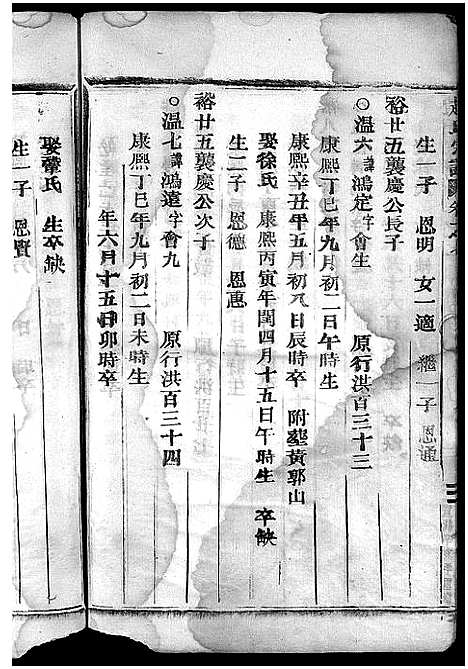 生一子 恩明 女一適 繼一子 恩通
裕廿五襄慶公長子
○溫六 諱鴻定 字會生 原行洪百三十三
康熙丁巳年九月初二日午時生
康熙辛丑年五月初八日辰時卒 附塟黃郭山
娶徐氏 康熙丙寅年閏四月十五日午時生 卒缺
生二子 恩德 恩惠
裕廿五襄慶公次子
○溫七 諱鴻遠 字會九 原行洪百三十四
康熙丁巳年九月初二日未時生
年六月十五日卯時卒
娶龔氏 生卒缺
生一子 恩賢